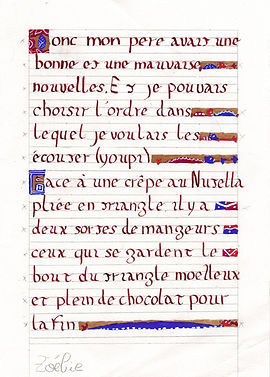 Donc mon père avait une
bonne et une mauvaise
nouvelles. Et je pouvais
choisir l'ordre dans
lequel je voulais les
écouter (youpi)
Face à une crêpe au Nutella
pliée en triangle, il y a
deux sortes de mangeurs
ceux qui se gardent le
bout du triangle moelleux
et plein de chocolat pour
la fin
Zoélie